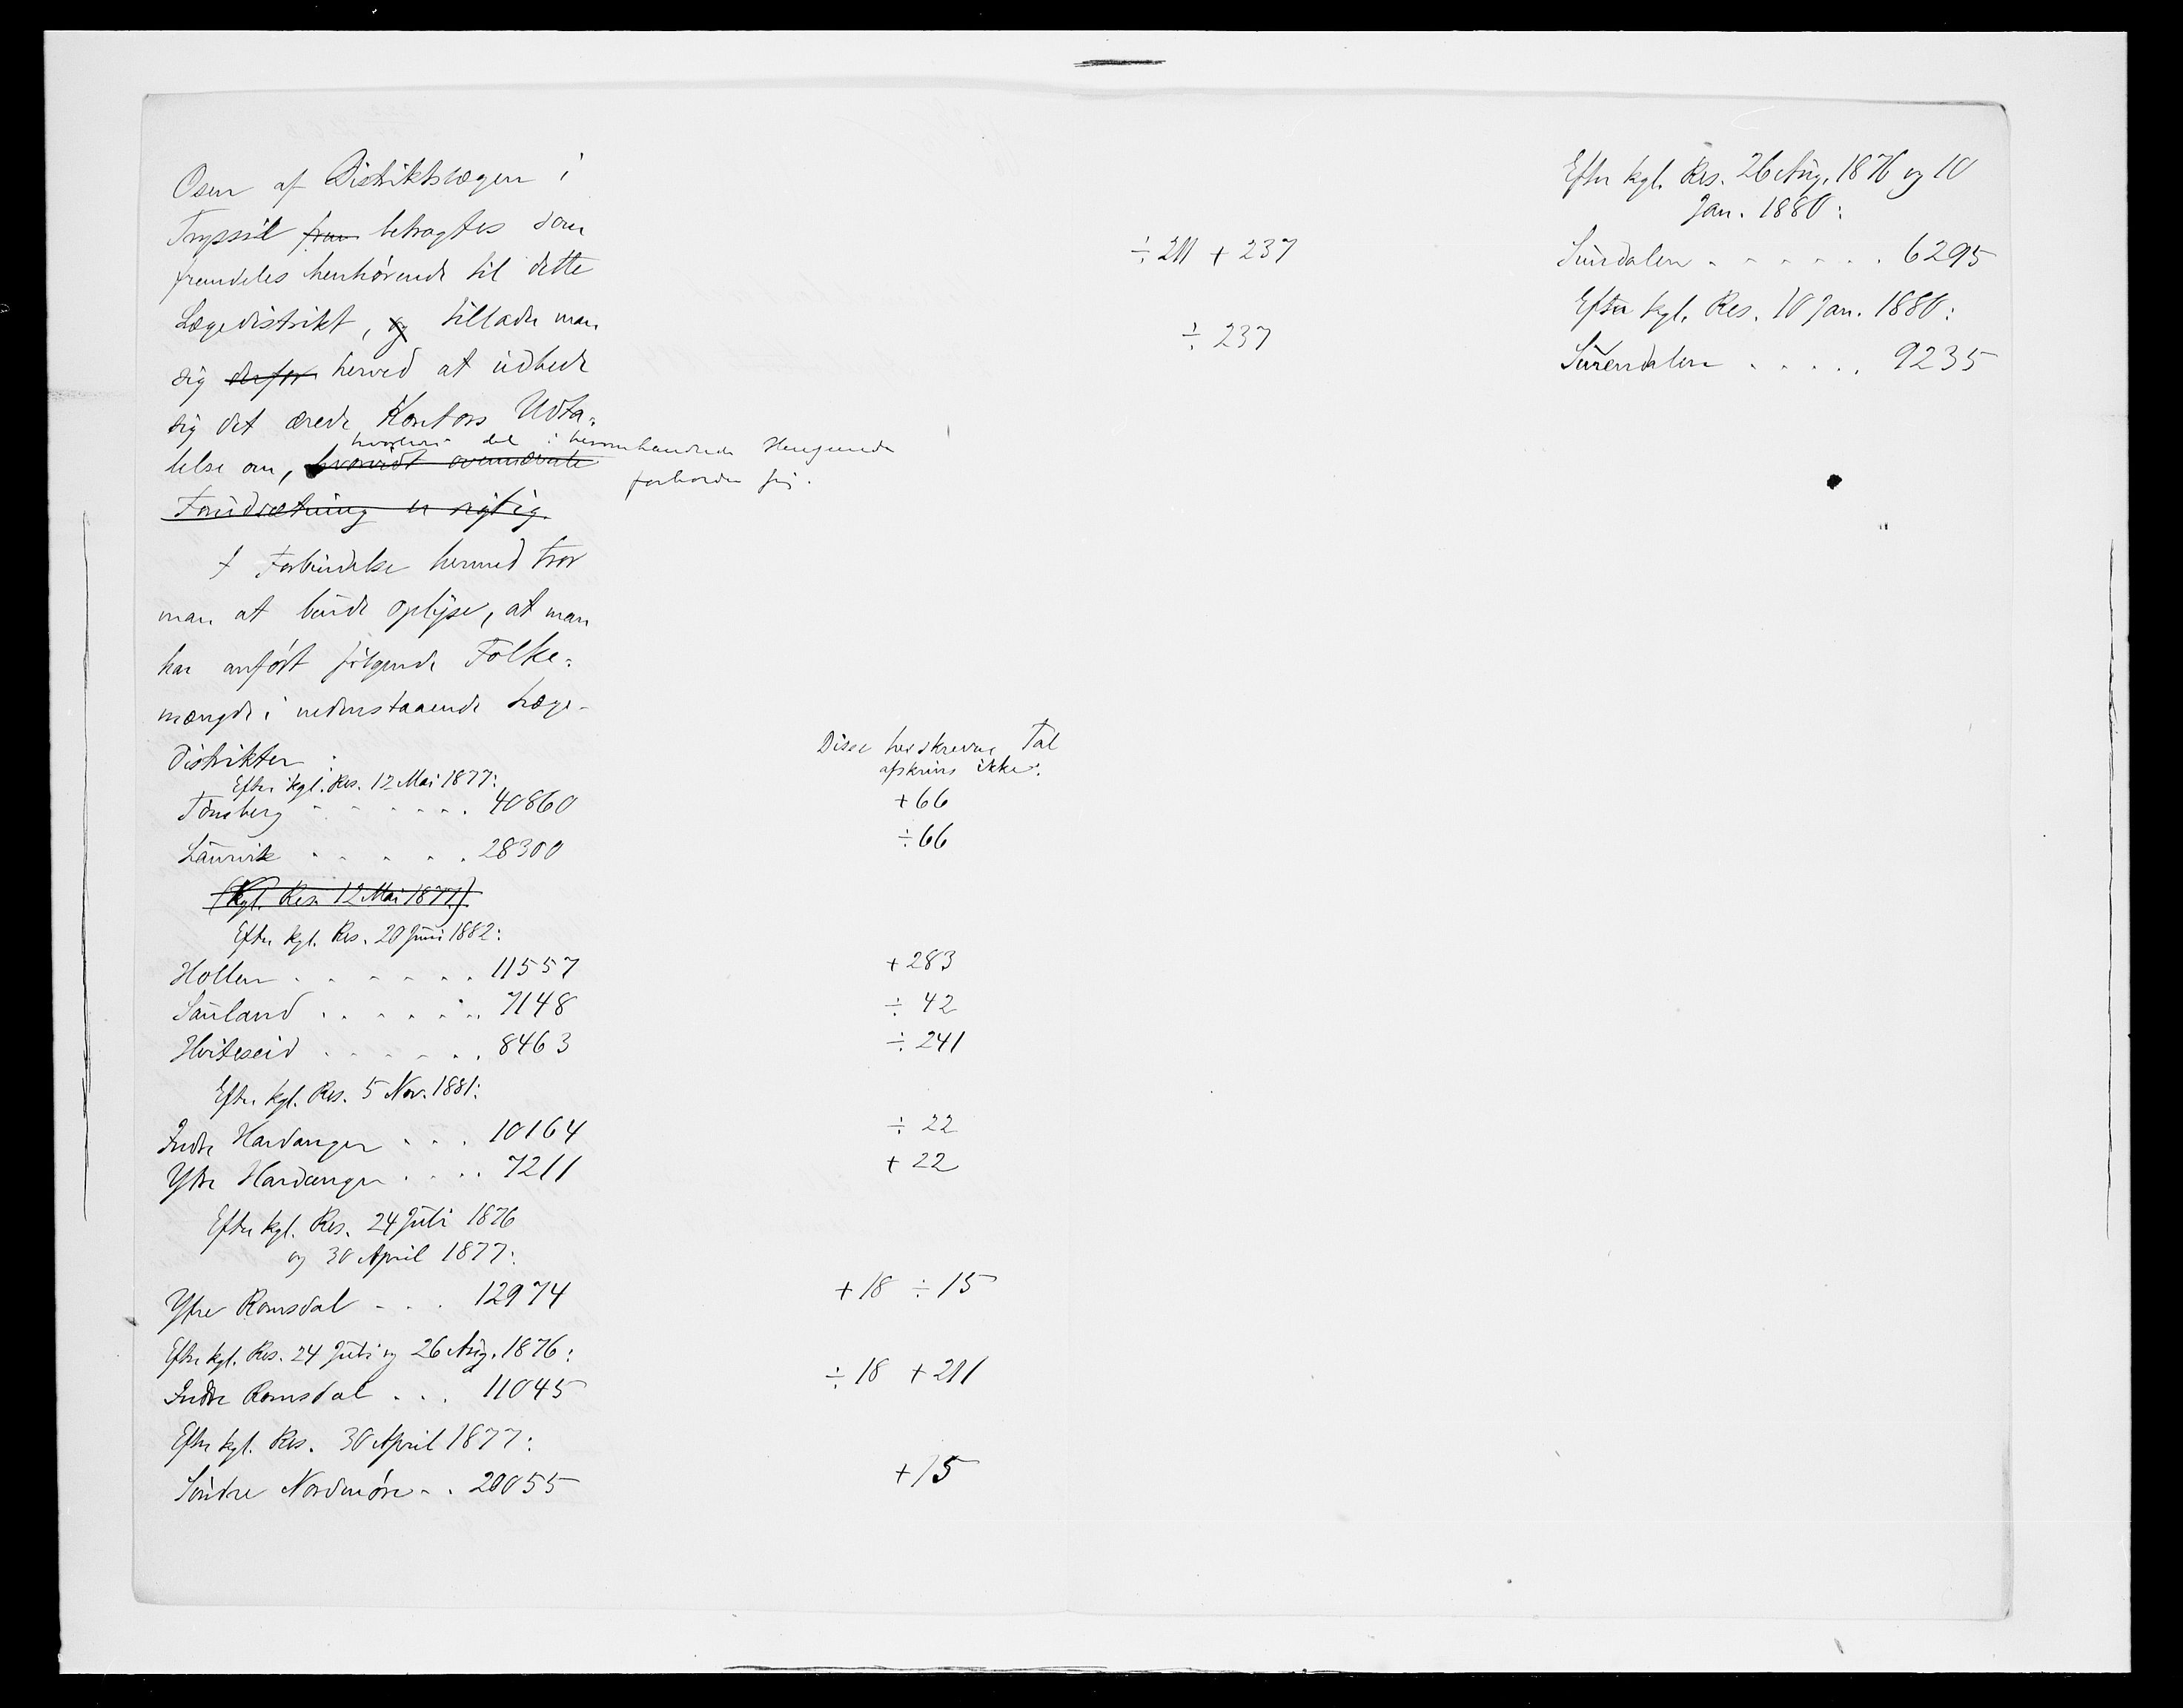 Osen af Distriktslægen i
Tryssil frem betragtes som
fremdeles henhørende til dette
Lægedistrikt, og tillader man
sig derfor herved at udbede
sig det ærede Kontors Udta-
hvorledes det i herom handlede Henseende
lelse om, hvorvidt ovennævnte
forholder sig.
Forudsætning er rigtig.
I Forbindelse hermed tror
man at burde oplyse, at man
har anført følgende Folke-
mængde i nedenstaaende Læge-
distrikter:
Disse her skrevne Tal
afskrives ikke.
Efter kgl. Res. 12 Mai 1877:
Tønsberg . . . . . . 40860 +66
Laurvik . . . . . . 28300 ÷66
(Kgl. Res. 12 Mai 1877).
Efter kgl. Res. 20 Juni 1882:
Hollen . . . . . . 11557 +283
Sauland . . . . . . 7148 ÷ 42
Hviteseid . . . . . . 8463 ÷ 241
Efter kgl. Res. 5 Nov. 1881:
Indre Hardanger . . . 10164 ÷ 22
Ytre Hardanger . . . . 7211 + 22
Efter kgl. Res. 24 Juli 1876
og 30 April 1877:
Ytre Romsdal . . . 12974 +18 ÷ 15
Efter kgl. Res. 24 Juli og 26 Aug. 1876:
Indre Romsdal . . . 11045 ÷ 18 +211
Efter kgl. Res. 30 April 1877:
Søndre Nordmøre . . 20055 +15
Efter kgl. Res. 26 Aug. 1876 og 10
Jan. 1880:
÷ 211 + 237 Sundalen . . . . . . 6295
Efter kgl. Res. 10 Jan. 1880:
÷ 237 Surendalen . . . . . 9235